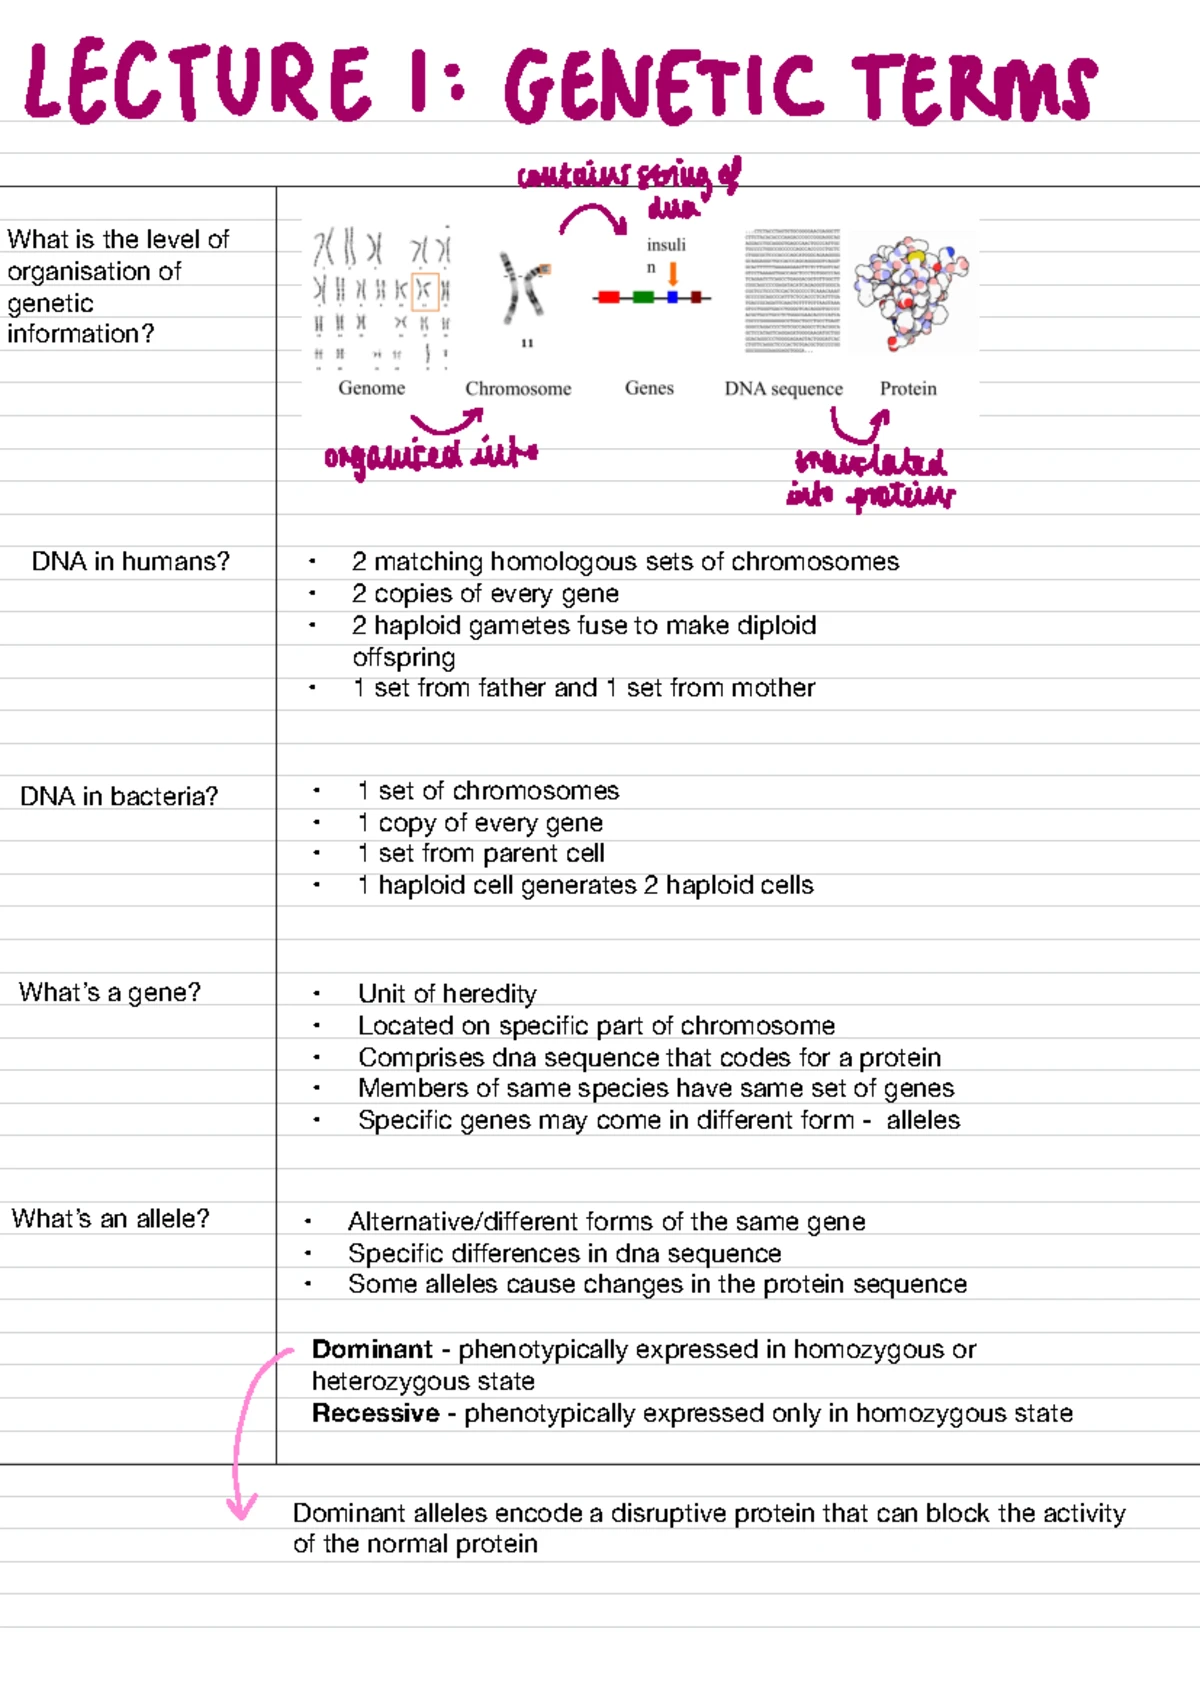 LECTURE 1: GENETIC TERMS
contains string of
dna
What is the level of
organisation of
genetic
information?
insuli
n
11
Genome
Chromosome
Genes
DNA sequence
Protein
organised into
translated
into proteins
DNA in humans?
• 2 matching homologous sets of chromosomes
• 2 copies of every gene
• 2 haploid gametes fuse to make diploid
offspring
• 1 set from father and 1 set from mother
DNA in bacteria?
• 1 set of chromosomes
• 1 copy of every gene
• 1 set from parent cell
• 1 haploid cell generates 2 haploid cells
What's a gene?
• Unit of heredity
• Located on specific part of chromosome
• Comprises dna sequence that codes for a protein
• Members of same species have same set of genes
• Specific genes may come in different form - alleles
What's an allele?
• Alternative/different forms of the same gene
• Specific differences in dna sequence
• Some alleles cause changes in the protein sequence
Dominant - phenotypically expressed in homozygous or
heterozygous state
Recessive - phenotypically expressed only in homozygous state
Dominant alleles encode a disruptive protein that can block the activity
of the normal protein